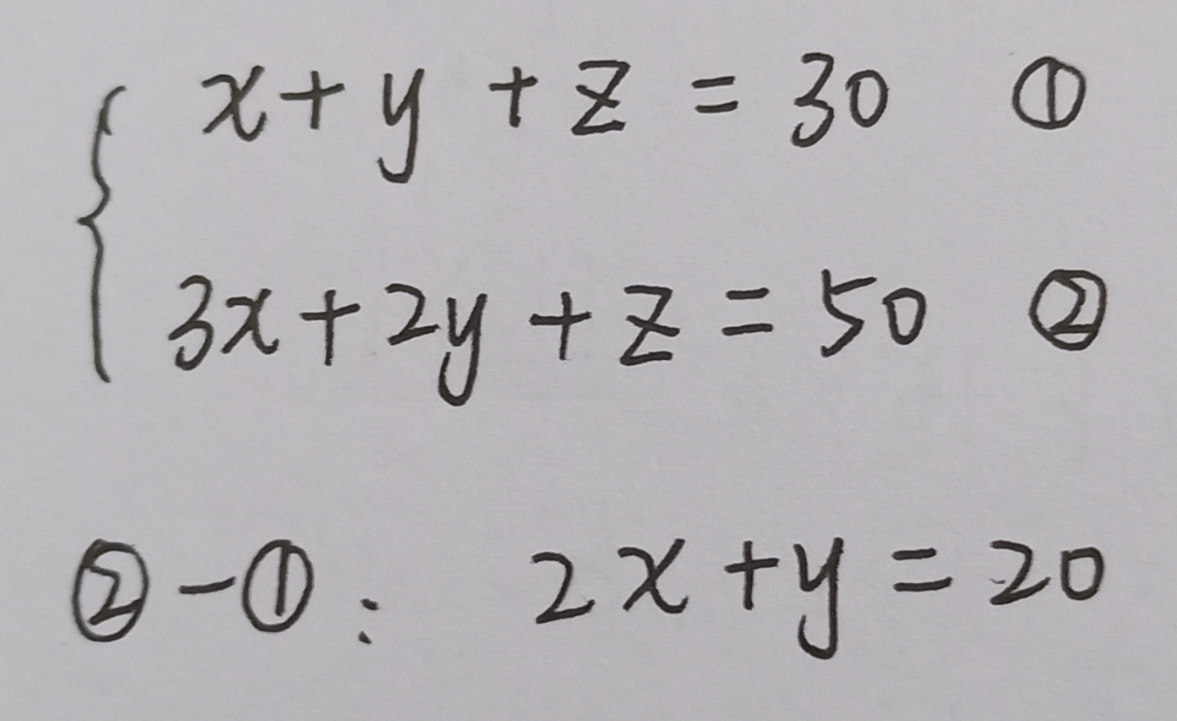 x + y + z = 30 ①
3x + 2y + z = 50 ②
② - ① : 2x + y = 20